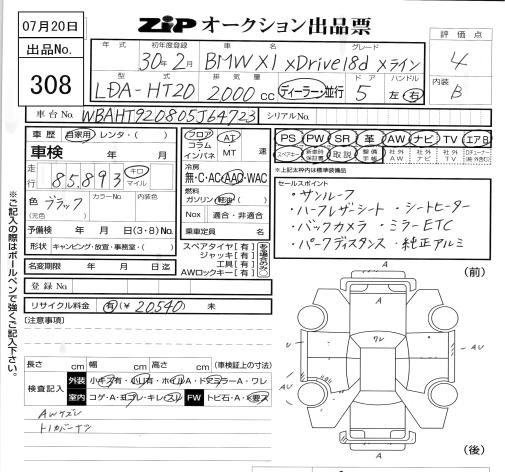 07月20日
ZIP オークション出品票
出品No.
308
評価点
4
内装
B
年式 初年度登録 車名 グレード
30年2月 BMW X1 xDrive18d xライン
型式 排気量 ドア ハンドル
LDA-HT20 2000cc ディーラー・並行 5 左 右
車台No. WBAHT920805J64723 シリアルNo.
車歴 自家用・レンタ・( )
車検 年 月
走行 85,893 キロ マイル
色 ブラック カラーNo. 内装色
(元色)
予備検 年 月 日(3・8)No.
形状 キャンピング・放宣・事務室・( )
名変期限 年 月 日迄
登録No.
リサイクル料金 有(¥ 20540) 未
フロア コラム インパネ AT・MT 速
冷房
無・C・AC・AAC・WAC
燃料
ガソリン・軽油( )
Nox 適合・非適合
乗車定員 名
スペアタイヤ[有]
ジャッキ[有]
工具[有]
AWロックキー[有]
PS PW SR 革 AW ナビ TV エアB
スペアキー 新車時保証書 取説 整備手帳 社外AW 社外ナビ
※上記太枠内は標準装備品
セールスポイント
・サンルーフ
・ハーフレザーシート ・シートヒーター
・バックカメラ ・ミラーETC
・パークディスタンス ・純正アルミ
※ご記入の際はボールペンで強くご記入下さい。
[注意事項]
長さ cm 幅 cm 高さ cm (車検証上の寸法)
検査記入 外装 小キズ有・小凹有・ホイルA・ドアミラーA・ワレ
室内 コゲ・A・ヨゴレ・キレ・スレ FW トビ石・A・要ス
AWキズ
(前)
A
U
ワレ
A
AU
A
U
A
AU
A
(後)